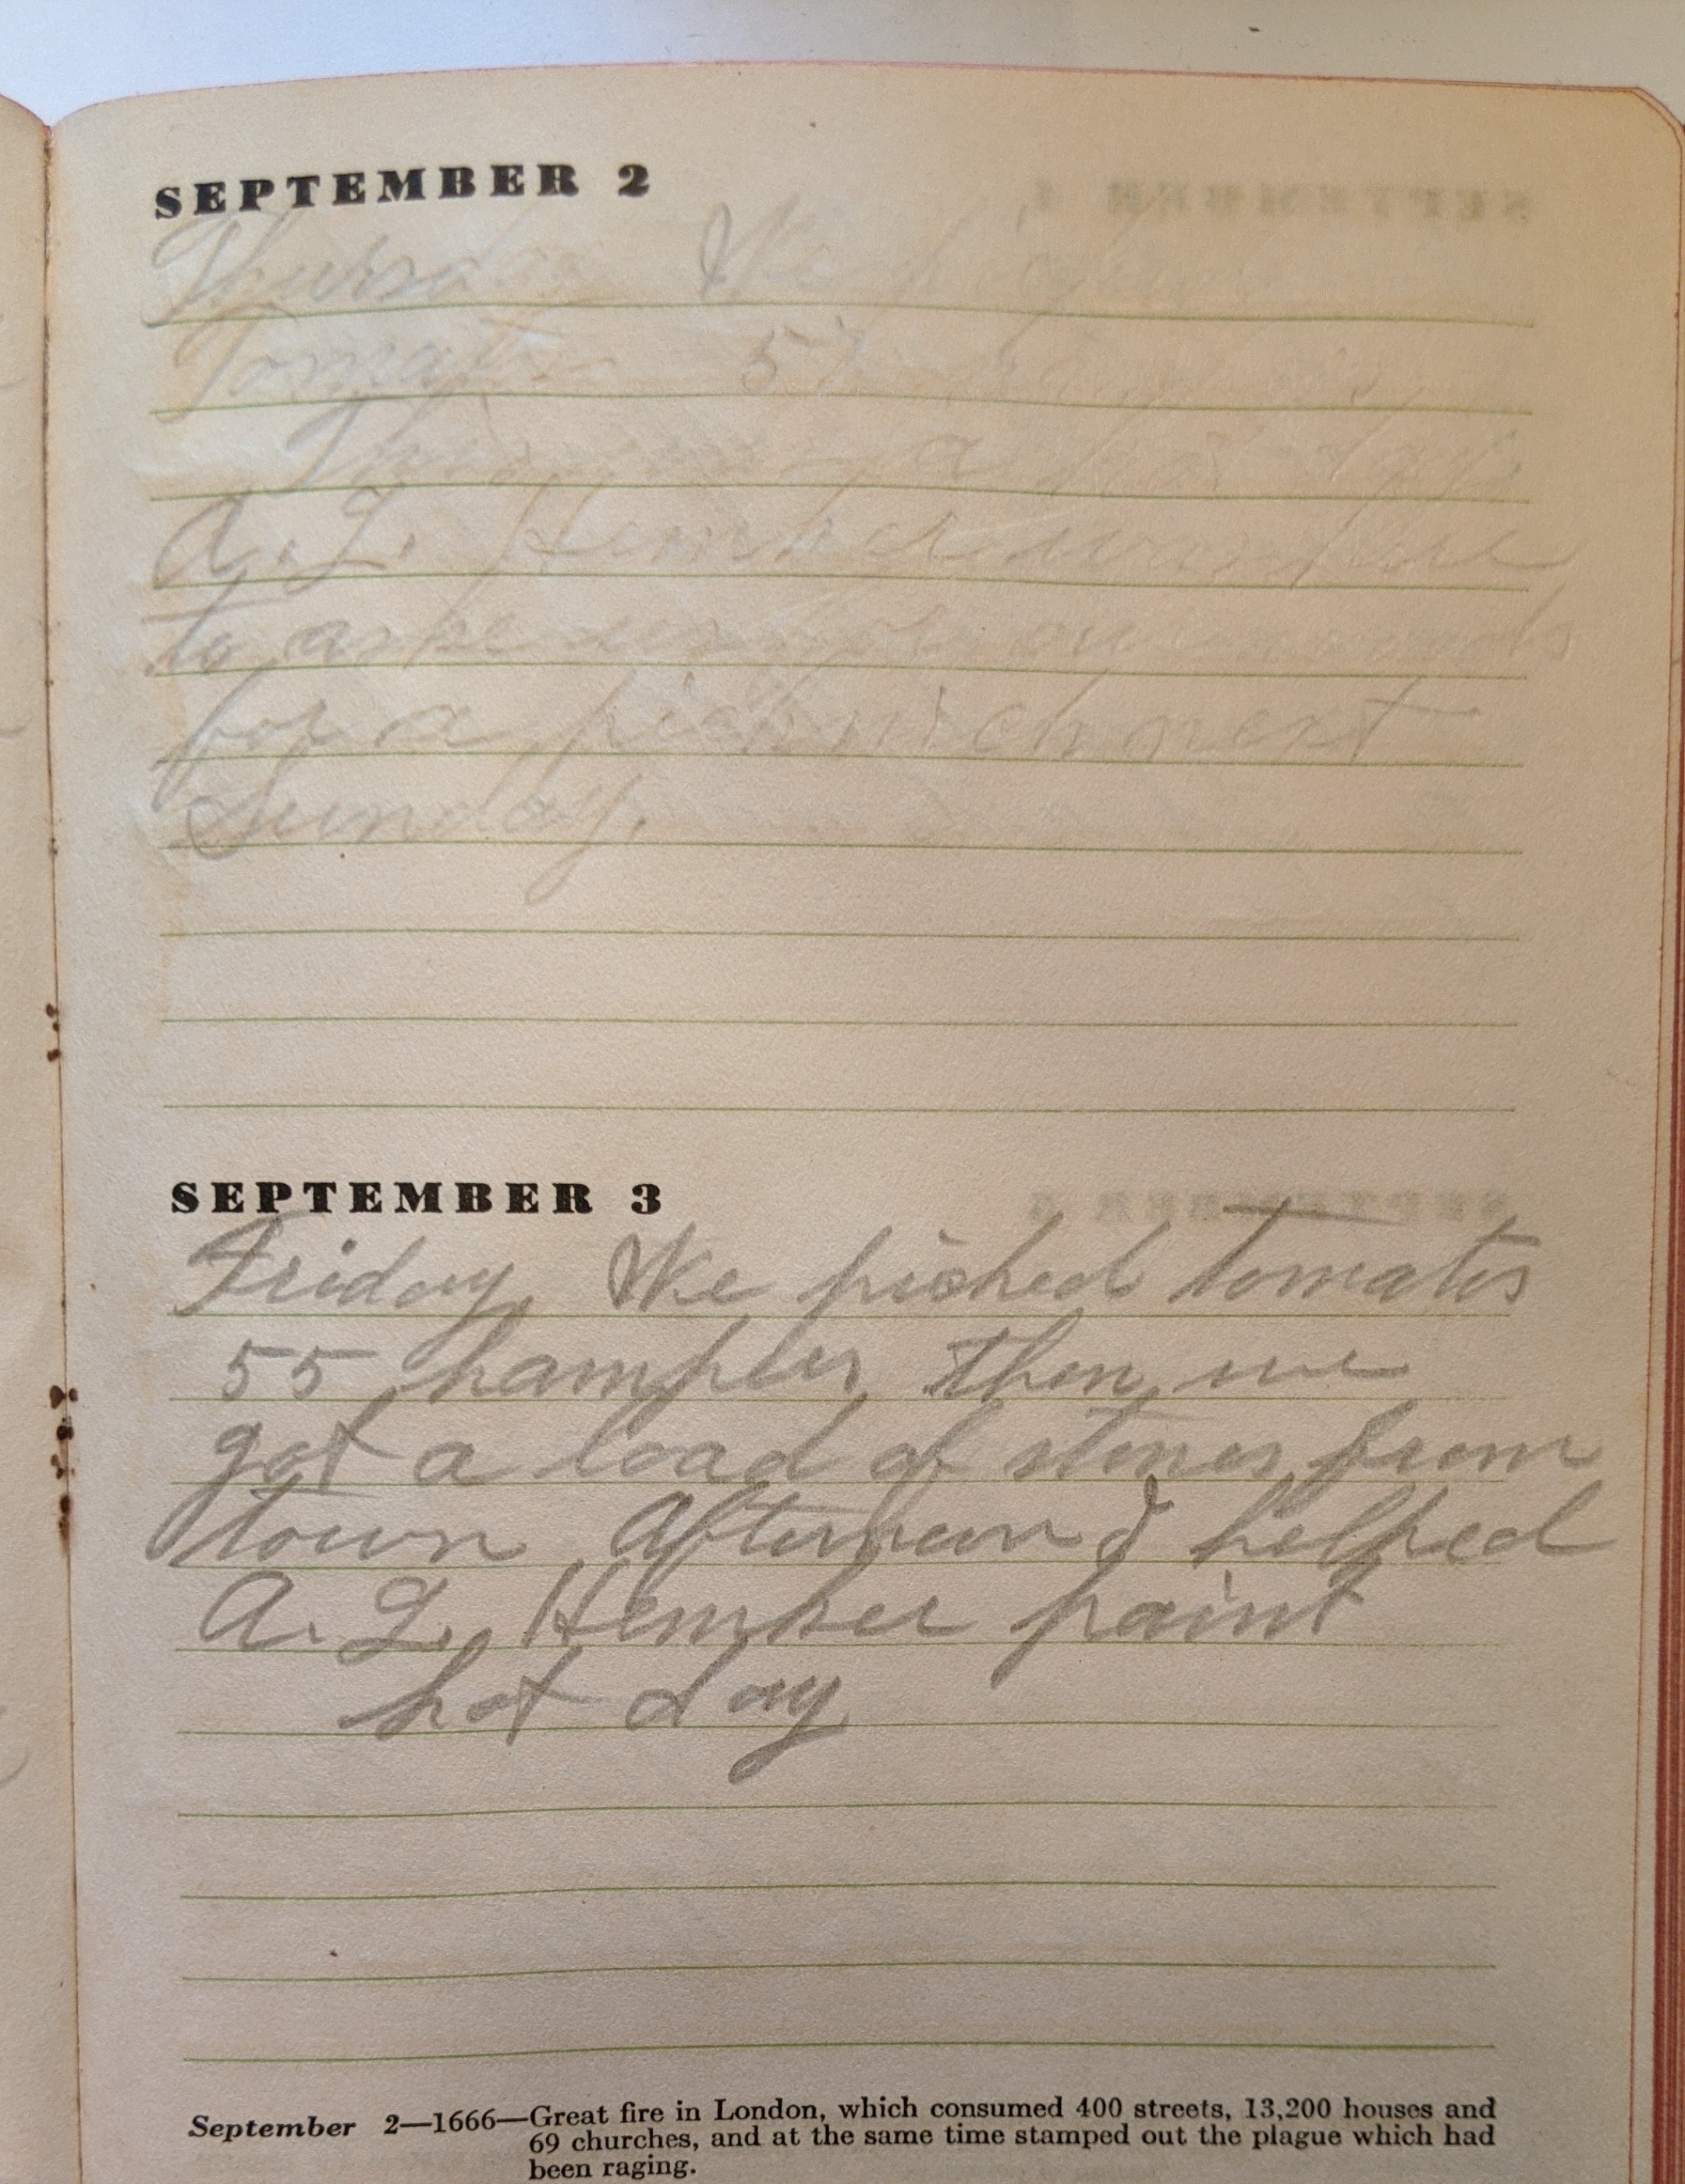 SEPTEMBER 2
Thursday We picked
Tomatos 57 hampers
This was a hot day.
A. L. Hember was here
to aske us to our woods
for a picknick next
Sunday.
SEPTEMBER 3
Friday We picked tomatos
55 hampers then we
got a load of stones from
town Afternoon I helped
A. L. Hember paint
hot day
September 2—1666—Great fire in London, which consumed 400 streets, 13,200 houses and
69 churches, and at the same time stamped out the plague which had
been raging.